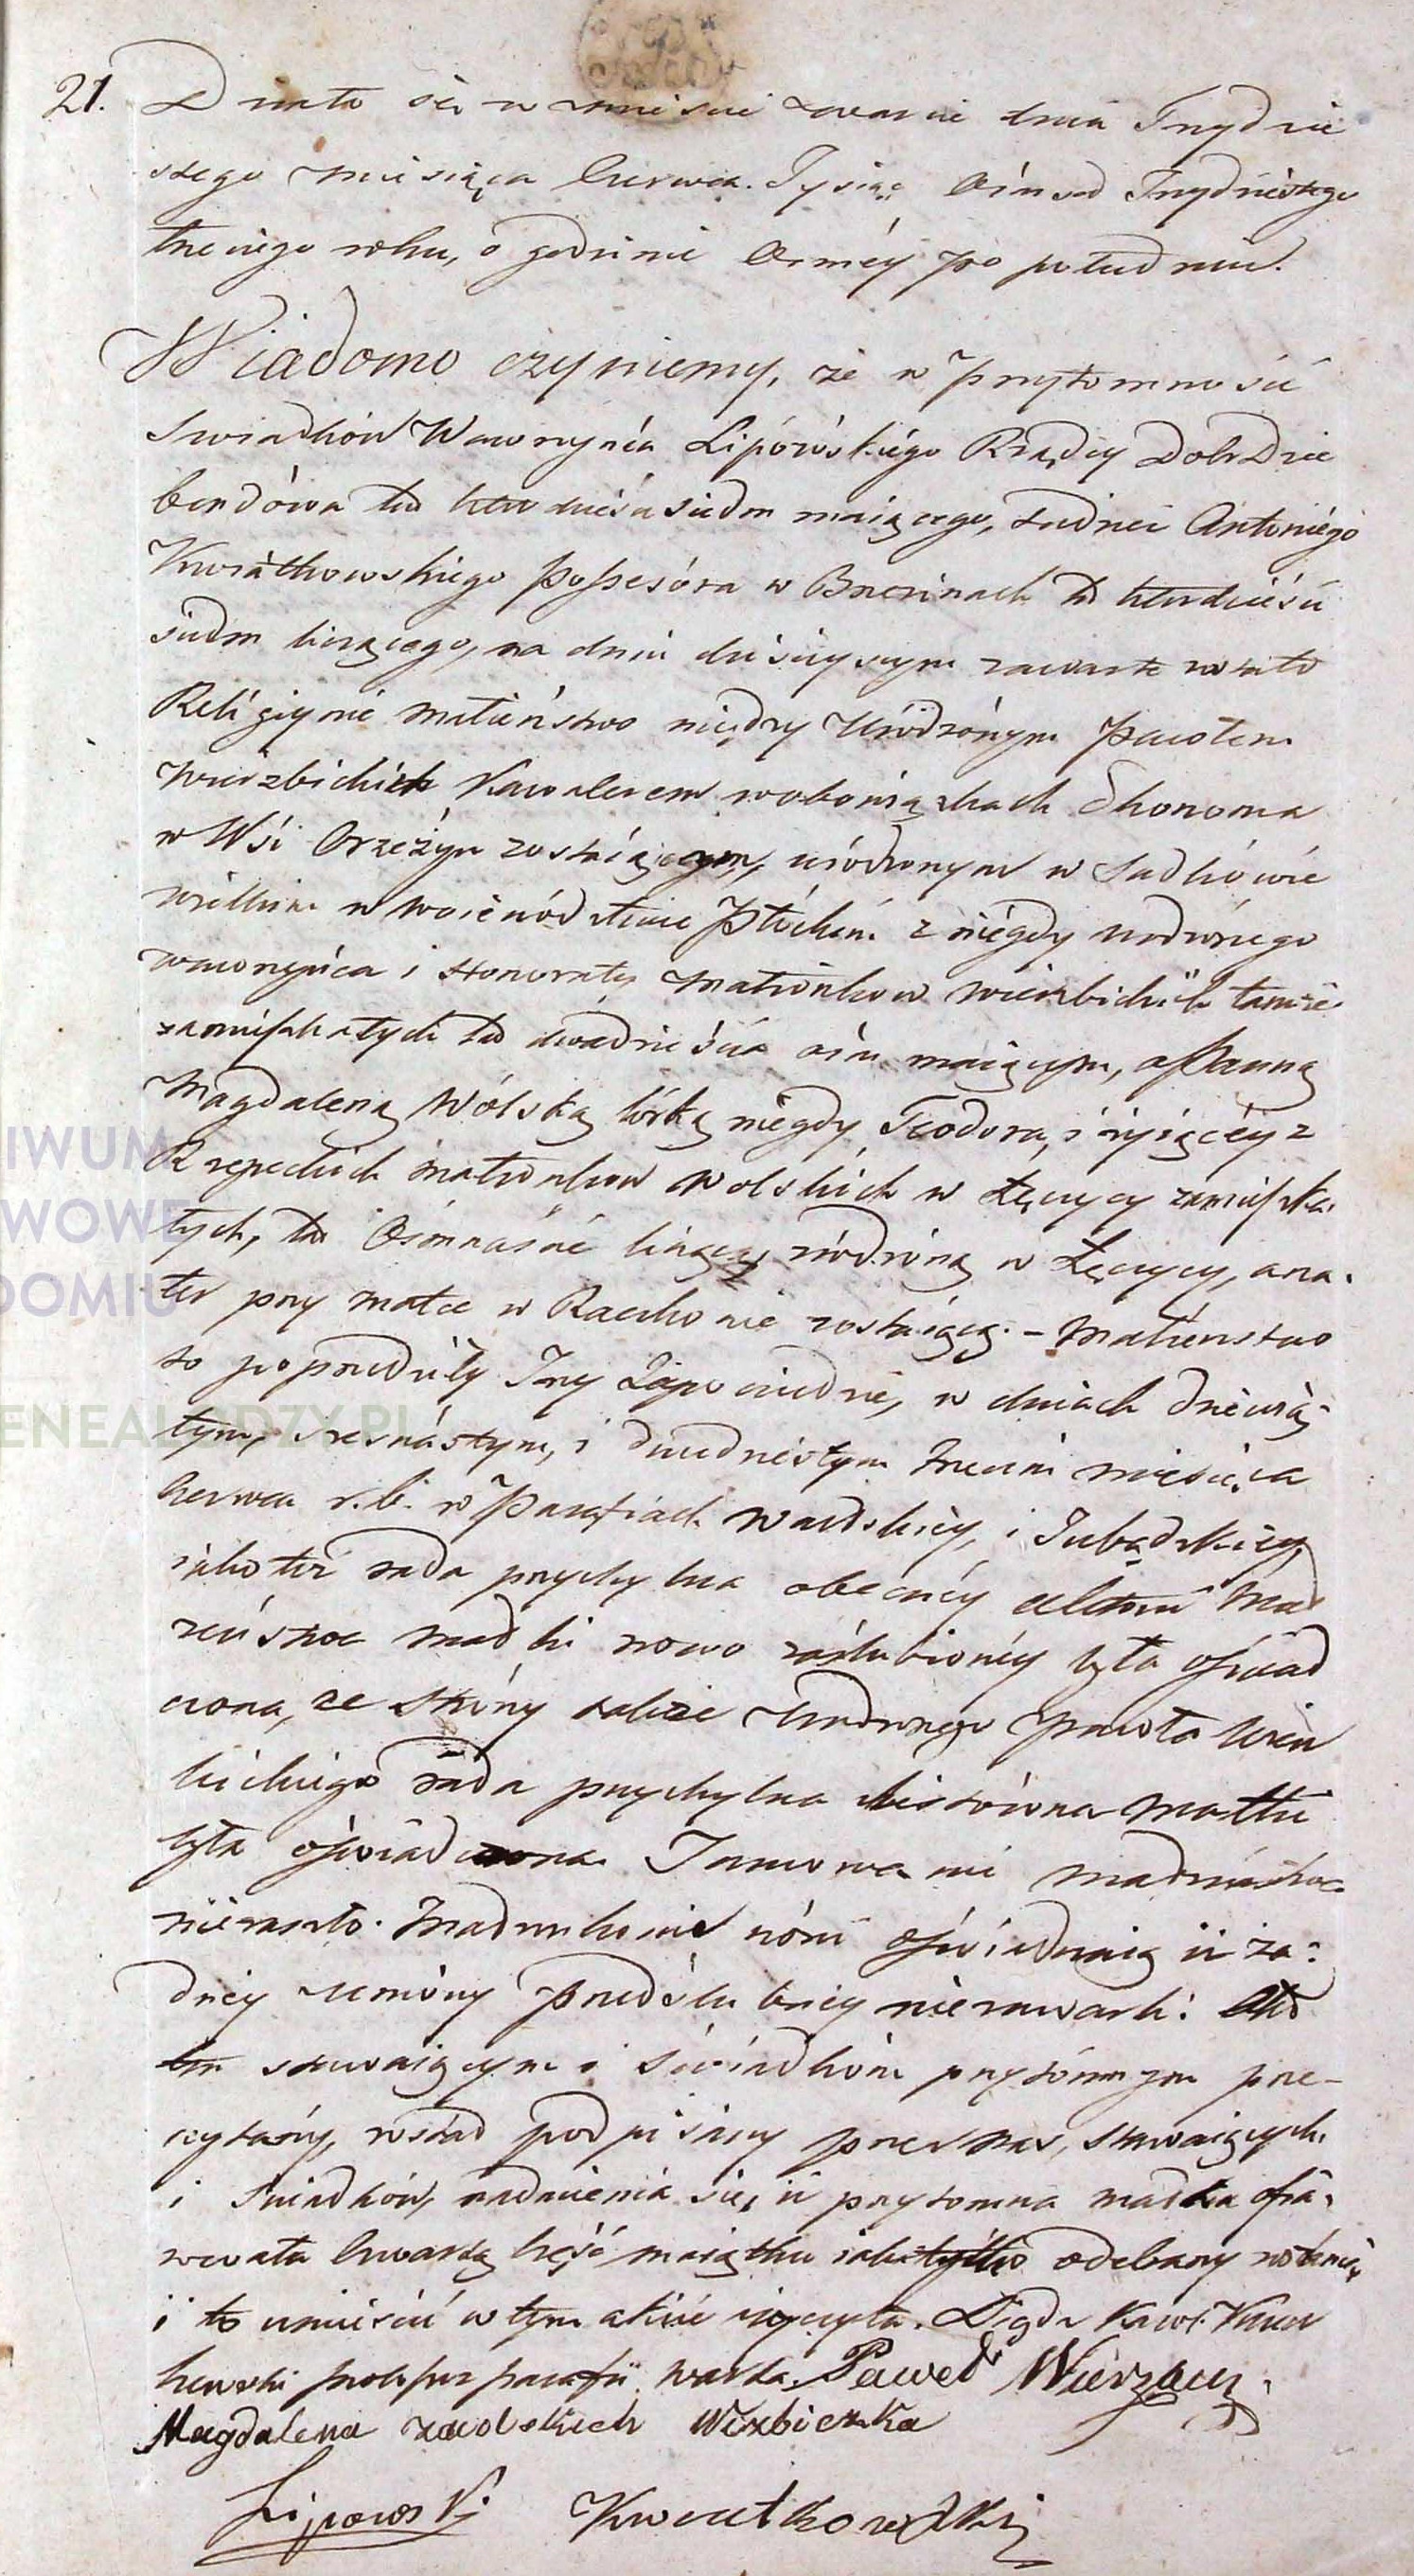 21. Działo się w mieście Warcie dnia Trzydzie
stego miesiąca Czerwca. Tysiąc Ośmset Trzydziestego
trzeciego roku, o godzinie Osméy po południu.
Wiadomo czyniemy, że w przytomności
Swiadków Wawrzyńca Lipowskiego Rządcy Dobr Dzie
bendówa lat czterdzieści siedm maiącego, tudzież Antoniego
Kwiatkowskiego possesora w Brzezinach lat czterdzieści
siedm liczącego, na dniu dzisieyszym zawarte zostało
Religiyne małżeństwo między Urodzonym Pawłem
Wierzbickim Kawalerem w obowiązkach Ekonoma
w Wsi Orzeżyn zostaiącym, urodzonym w Sadkowie
wielkim w Woiewództwie Płockim z niegdy urodzonego
Wawrzyńca i Honoraty Małżonków Wierzbickich tamże
zamieszkałych lat dwadzieścia ośm maiącym, a Panną
Magdaleną Wólską córką niegdy Teodora, i żyiącéy z
Rzepeckich małżonków Wolskich w Łęczycy zamieszka
łych, lat Osmnaście liczącą, urodzoną w Łęczycy, a na
ter przy matce w Raczkowie zostaiącą. – Małżeństwo
to poprzedziły Trzy Zapowiedzie, w dniach dziewią
tym, szesnastym, i dwudziestym trzecim miesiąca
Czerwca r. b. w Parafiach Wardskiey, i
iako też rada przychylna obecnéy aktowi Mał
żeństwa matki nowo zaślubionéy była oświad
czona, ze strony także Urodzonego Pawła Wierz
bickiego rada przychylna matki
była oświadczona. Tamowanie małżeństwa
niezaszło. Małżonkowie nowi oświadczaią iż ża
dnéy umowy przedślubnéy niezawarli. Akt
ten stawaiącym i świadkom przytomnym prze-
czytany, został podpisany przez nas, stawaiących
i Swiadków, nadmienia się, iż przytomna matka ofia
rowała czwartą część maiątku odebrany
i to umieścić w tym akcie życzyła.
proboszcz parafii Warta. Paweł Wierzbicki
Magdalena zwolskich Wizbiczka
Lipowski Kwiatkowski